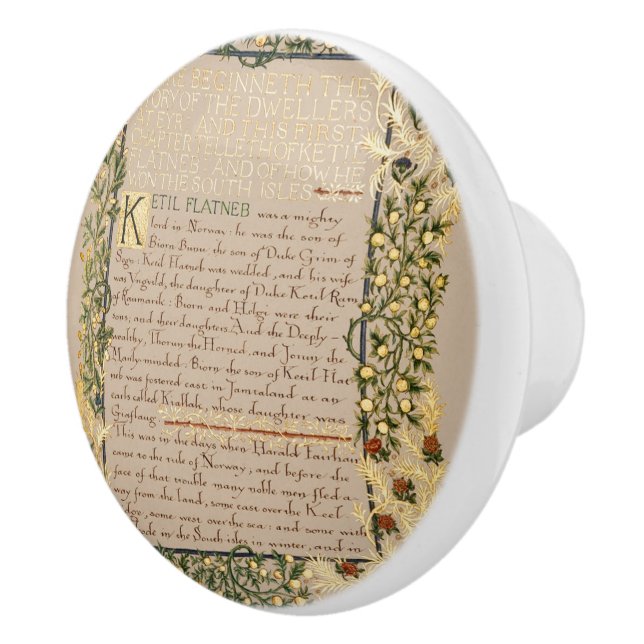 BEGINNETH THE
STORY OF THE DWELLERS
AT EYR: AND THIS FIRST
CHAPTER TELLETH OF KETIL
FLATNEB: AND OF HOW HE
WON THE SOUTH ISLES
KETIL FLATNEB was a mighty
lord in Norway: he was the son of
Biorn Bunu the son of Duke Grim of
Sogn: Ketil Flatneb was wedded, and his wife
was Yngveld, the daughter of Duke Ketil Ram
of Raumarik: Biorn and Helgi were their
sons; and their daughters Aud the Deeply-
wealthy, Thorun the Horned, and Jorun the
Manly-minded: Biorn the son of Ketil Flat
neb was fostered east in Jamtaland at an
earls called Kiallak, whose daughter was
Giaflaug
This was in the days when Harald Fairhair
came to the rule of Norway; and before the
face of that trouble many noble men fled a
way from the land, some east over the Keel
some west over the sea: and some with
in the South isles in winter, and in